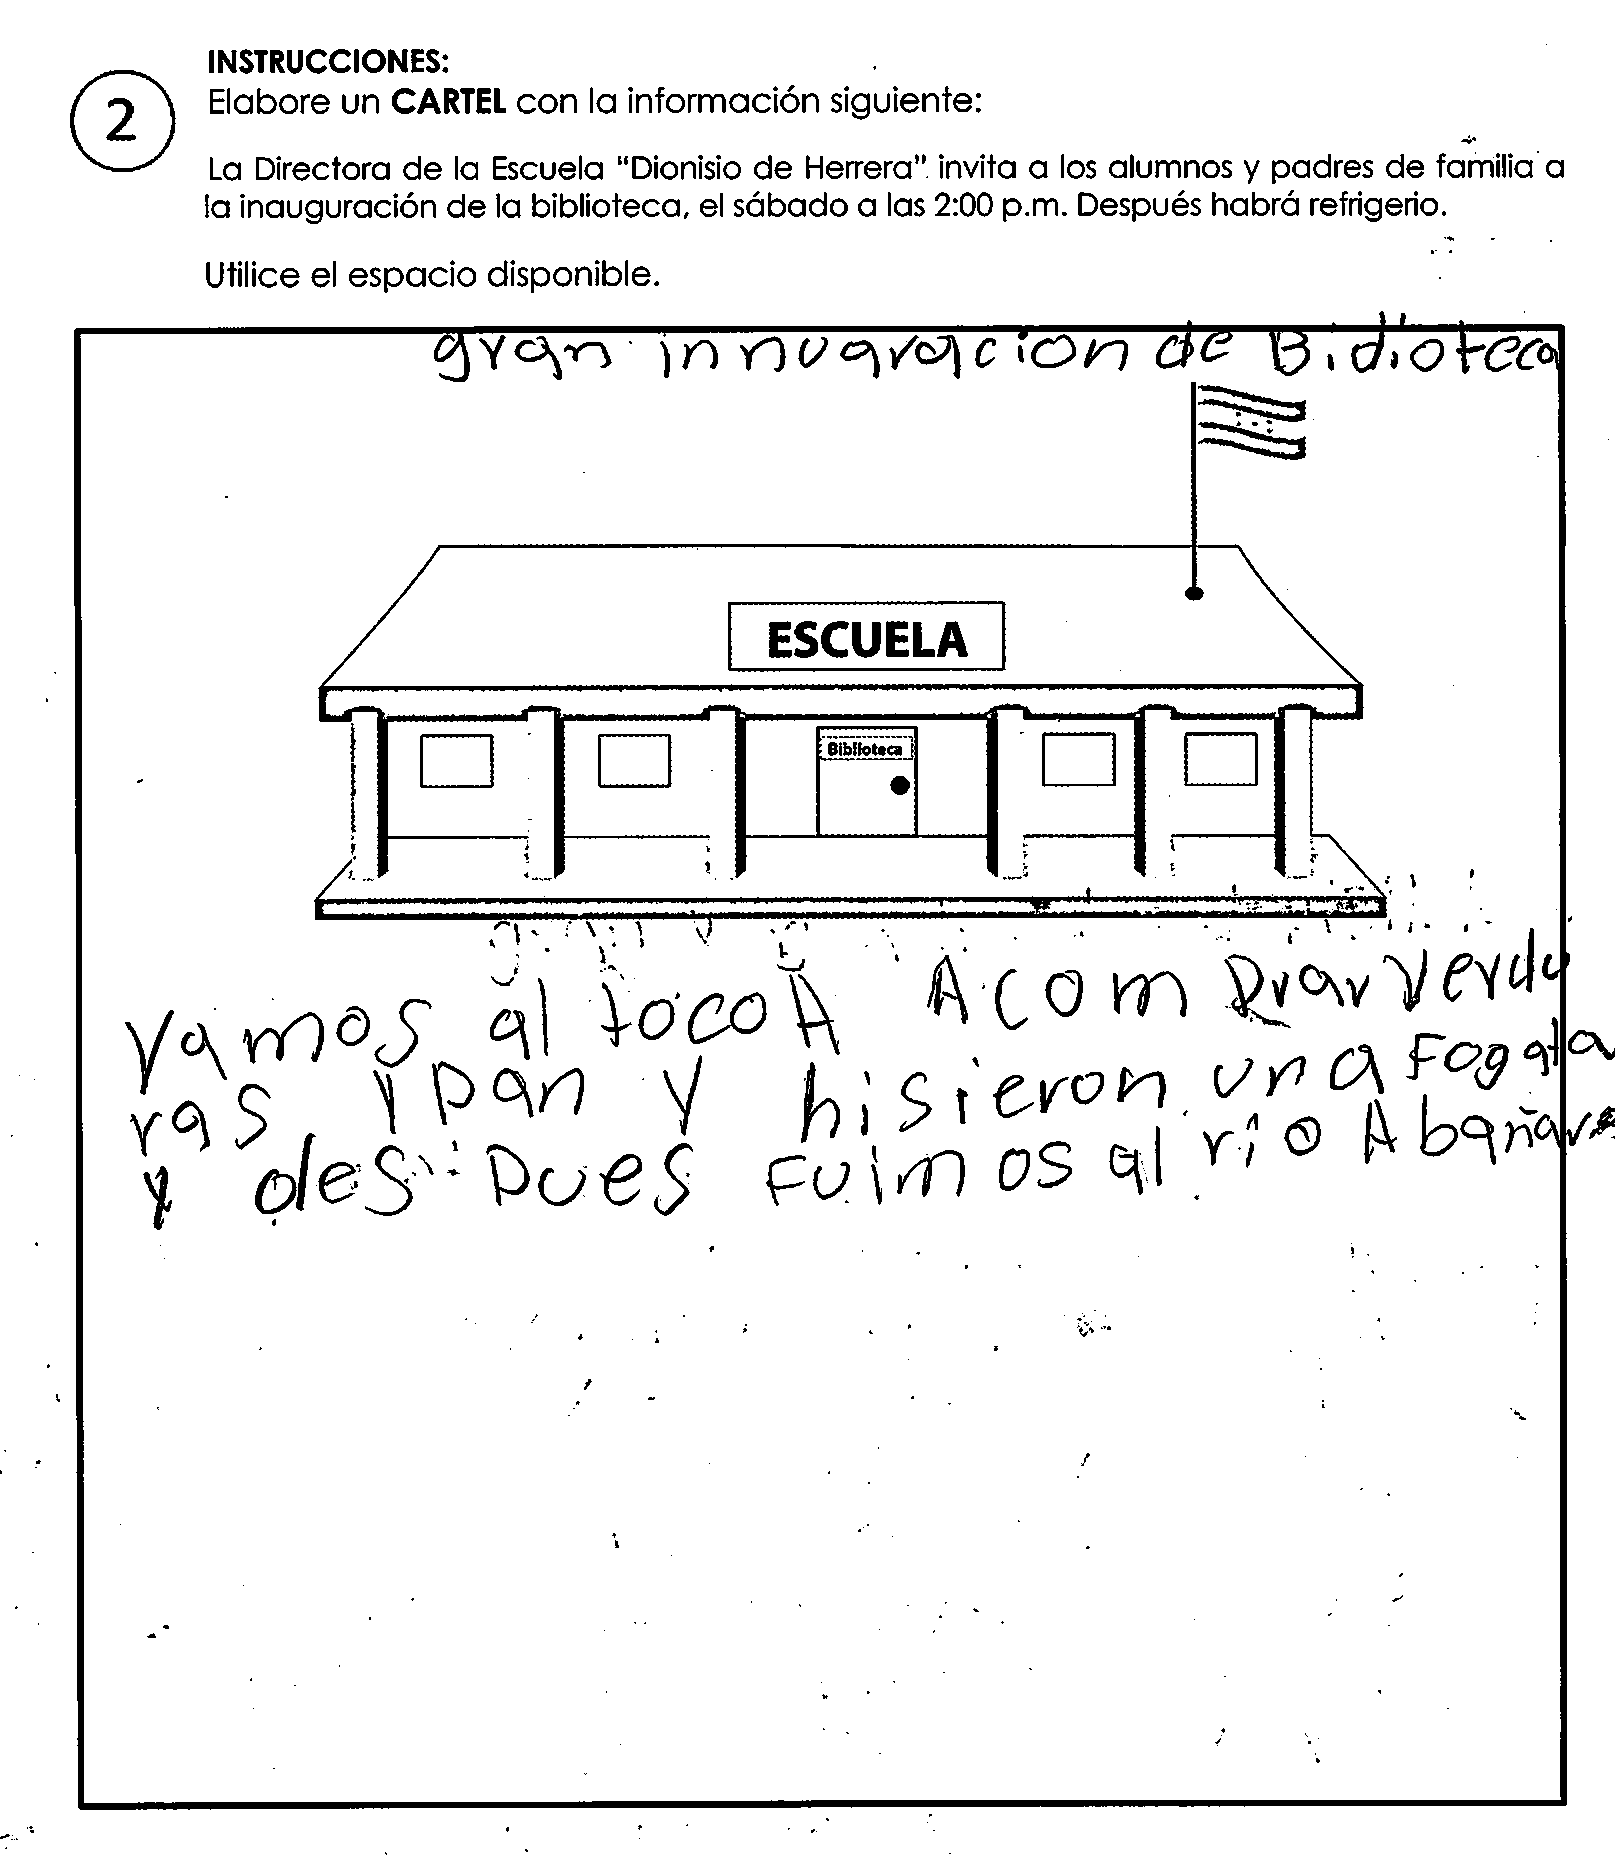 INSTRUCCIONES:
2
Elabore un CARTEL con la información siguiente:
La Directora de la Escuela "Dionisio de Herrera". invita a los alumnos y padres de familia a
la inauguración de la biblioteca, el sábado a las 2:00 p.m. Después habrá refrigerio.
Utilice el espacio disponible.
gran innuaracion de Bidioteca
ESCUELA
Biblioteca
Vamos al tocoA A comprar Verdu
ras y pan y hisieron una Fogata
y des pues Fuimos al rio A bañar